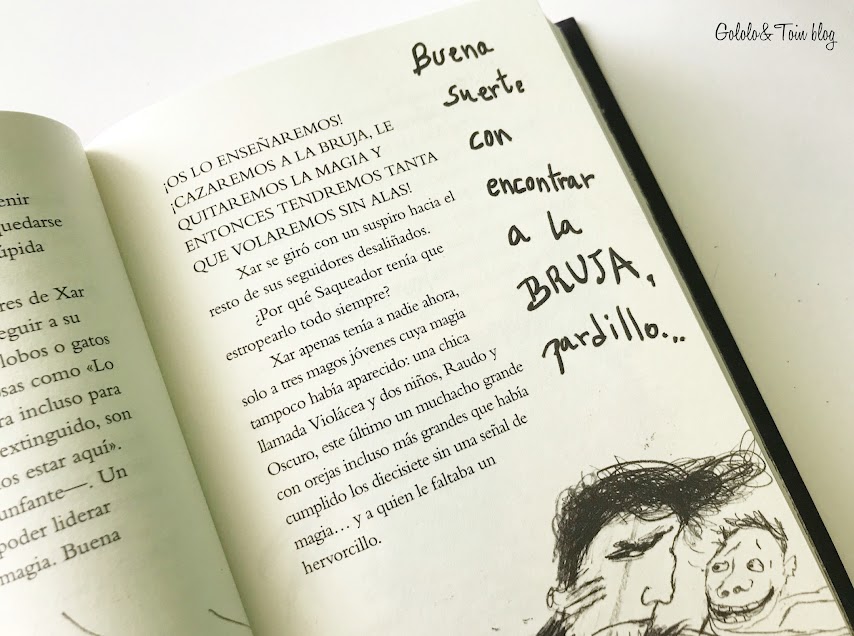 enir
quedarse
úpida
res de Xar
eguir a su
lobos o gatos
osas como «Lo
ra incluso para
extinguido, son
os estar aquí».
unfante—. Un
poder liderar
magia. Buena
¡OS LO ENSEÑAREMOS!
¡CAZAREMOS A LA BRUJA, LE
QUITAREMOS LA MAGIA Y
ENTONCES TENDREMOS TANTA
QUE VOLAREMOS SIN ALAS!
Xar se giró con un suspiro hacia el
resto de sus seguidores desaliñados.
¿Por qué Saqueador tenía que
estropearlo todo siempre?
Xar apenas tenía a nadie ahora,
solo a tres magos jóvenes cuya magia
tampoco había aparecido: una chica
llamada Violácea y dos niños, Raudo y
Oscuro, este último un muchacho grande
con orejas incluso más grandes que había
cumplido los diecisiete sin una señal de
magia... y a quien le faltaba un
hervorcillo.
Buena
suerte
con
encontrar
a la
BRUJA,
pardillo...
Gololo & Toin blog